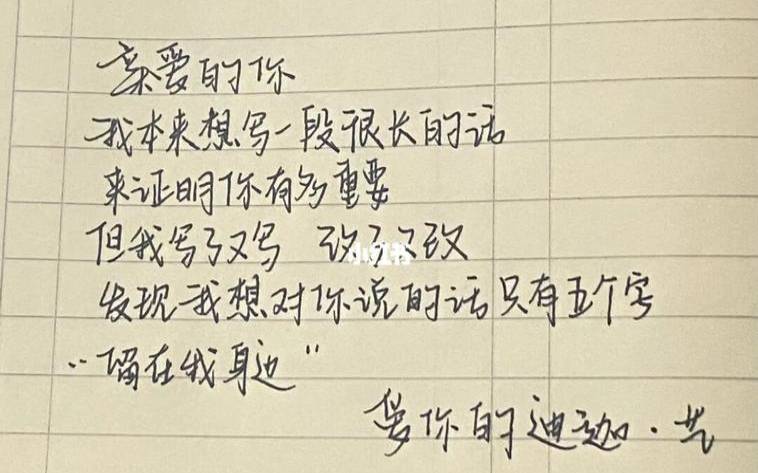 亲爱的你
我本来想写一段很长的话
来证明你有多重要
但我写了又写 改了又改
发现我想对你说的话只有五个字
“留在我身边”
爱你的迪迦·艺
小红书